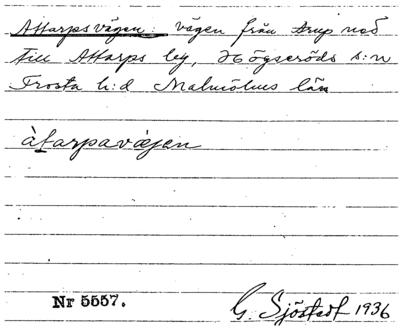 Attarpsvägen: vägen från Arup ned
till Attarps by, Högseröds s:n
Frosta h:d Malmöhus län
àtarpavägen
Nr 5557.
G. Sjöstedt 1936